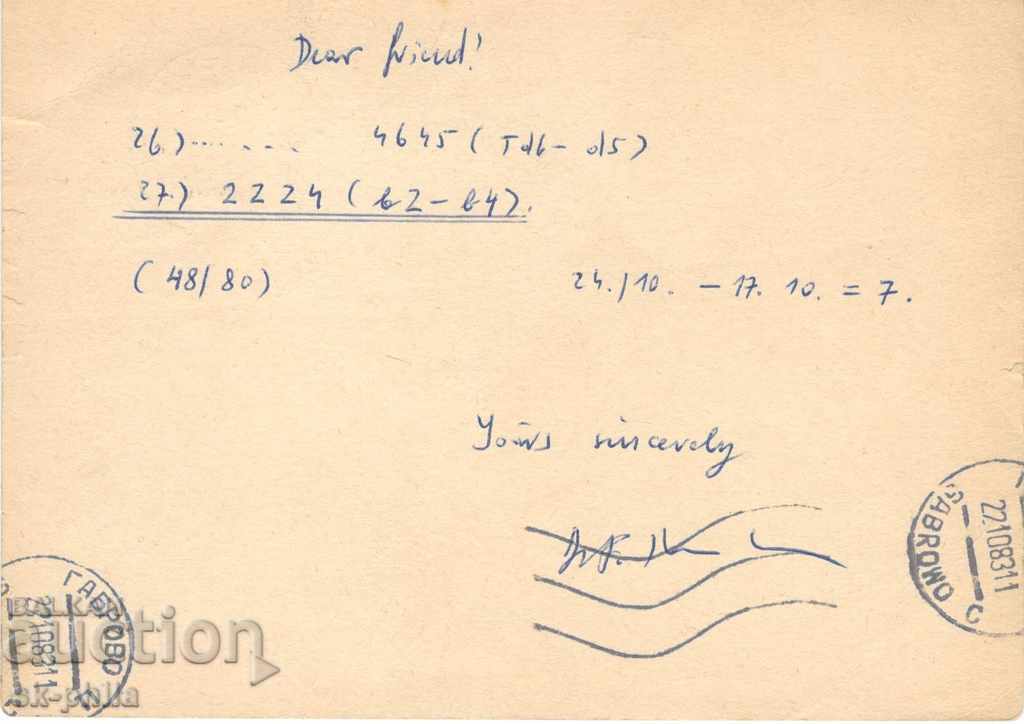 Dear friend!
26.) ...... 4645 (Td6 - d5)
27.) 2224 (b2 - b4).
(48/80) 24./10. - 17. 10. = 7.
Yours sincerely
GABROWO
22.10.83 11
ГАБРОВО
22.10.83 11
BALKAN
auction
sk-phila